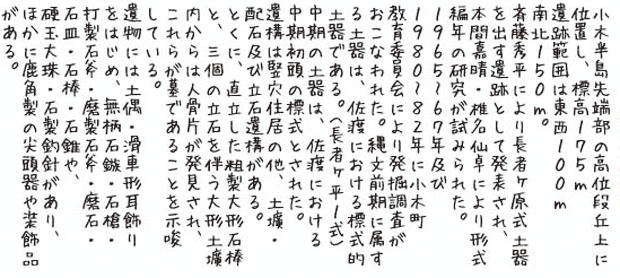 小木半島先端部の高位段丘上に
位置し、標高175m
遺跡範囲は東西100m
南北150m。
斉藤秀平により長者ヶ原式土器
を出す遺跡として発表され、
本間嘉晴・椎名仙卓により形式
編年の研究が試みられた。
1965/67年及び
1980/82年に小木町
教育委員会により発掘調査が
おこなわれた。縄文前期に属す
る土器は、佐渡における標式的
土器である。(長者ヶ平Ⅰ式)
中期の土器は、佐渡における
中期初頭の標式とされた。
遺構は竪穴住居の他、土壙・
配石及び立石遺構がある。
とくに、直立した粗製大形石棒
と、三個の立石を伴う大形土壙
内からは人骨片が発見され、
これらが墓であることを示唆
している。
遺物には土偶・滑車形耳飾り
をはじめ、無柄石鏃・石槍・
打製石斧・磨製石斧・磨石・
石皿・石棒・石錐や、
硬玉大珠・石製釣針があり、
ほかに鹿角製の尖頭器や装飾品
がある。